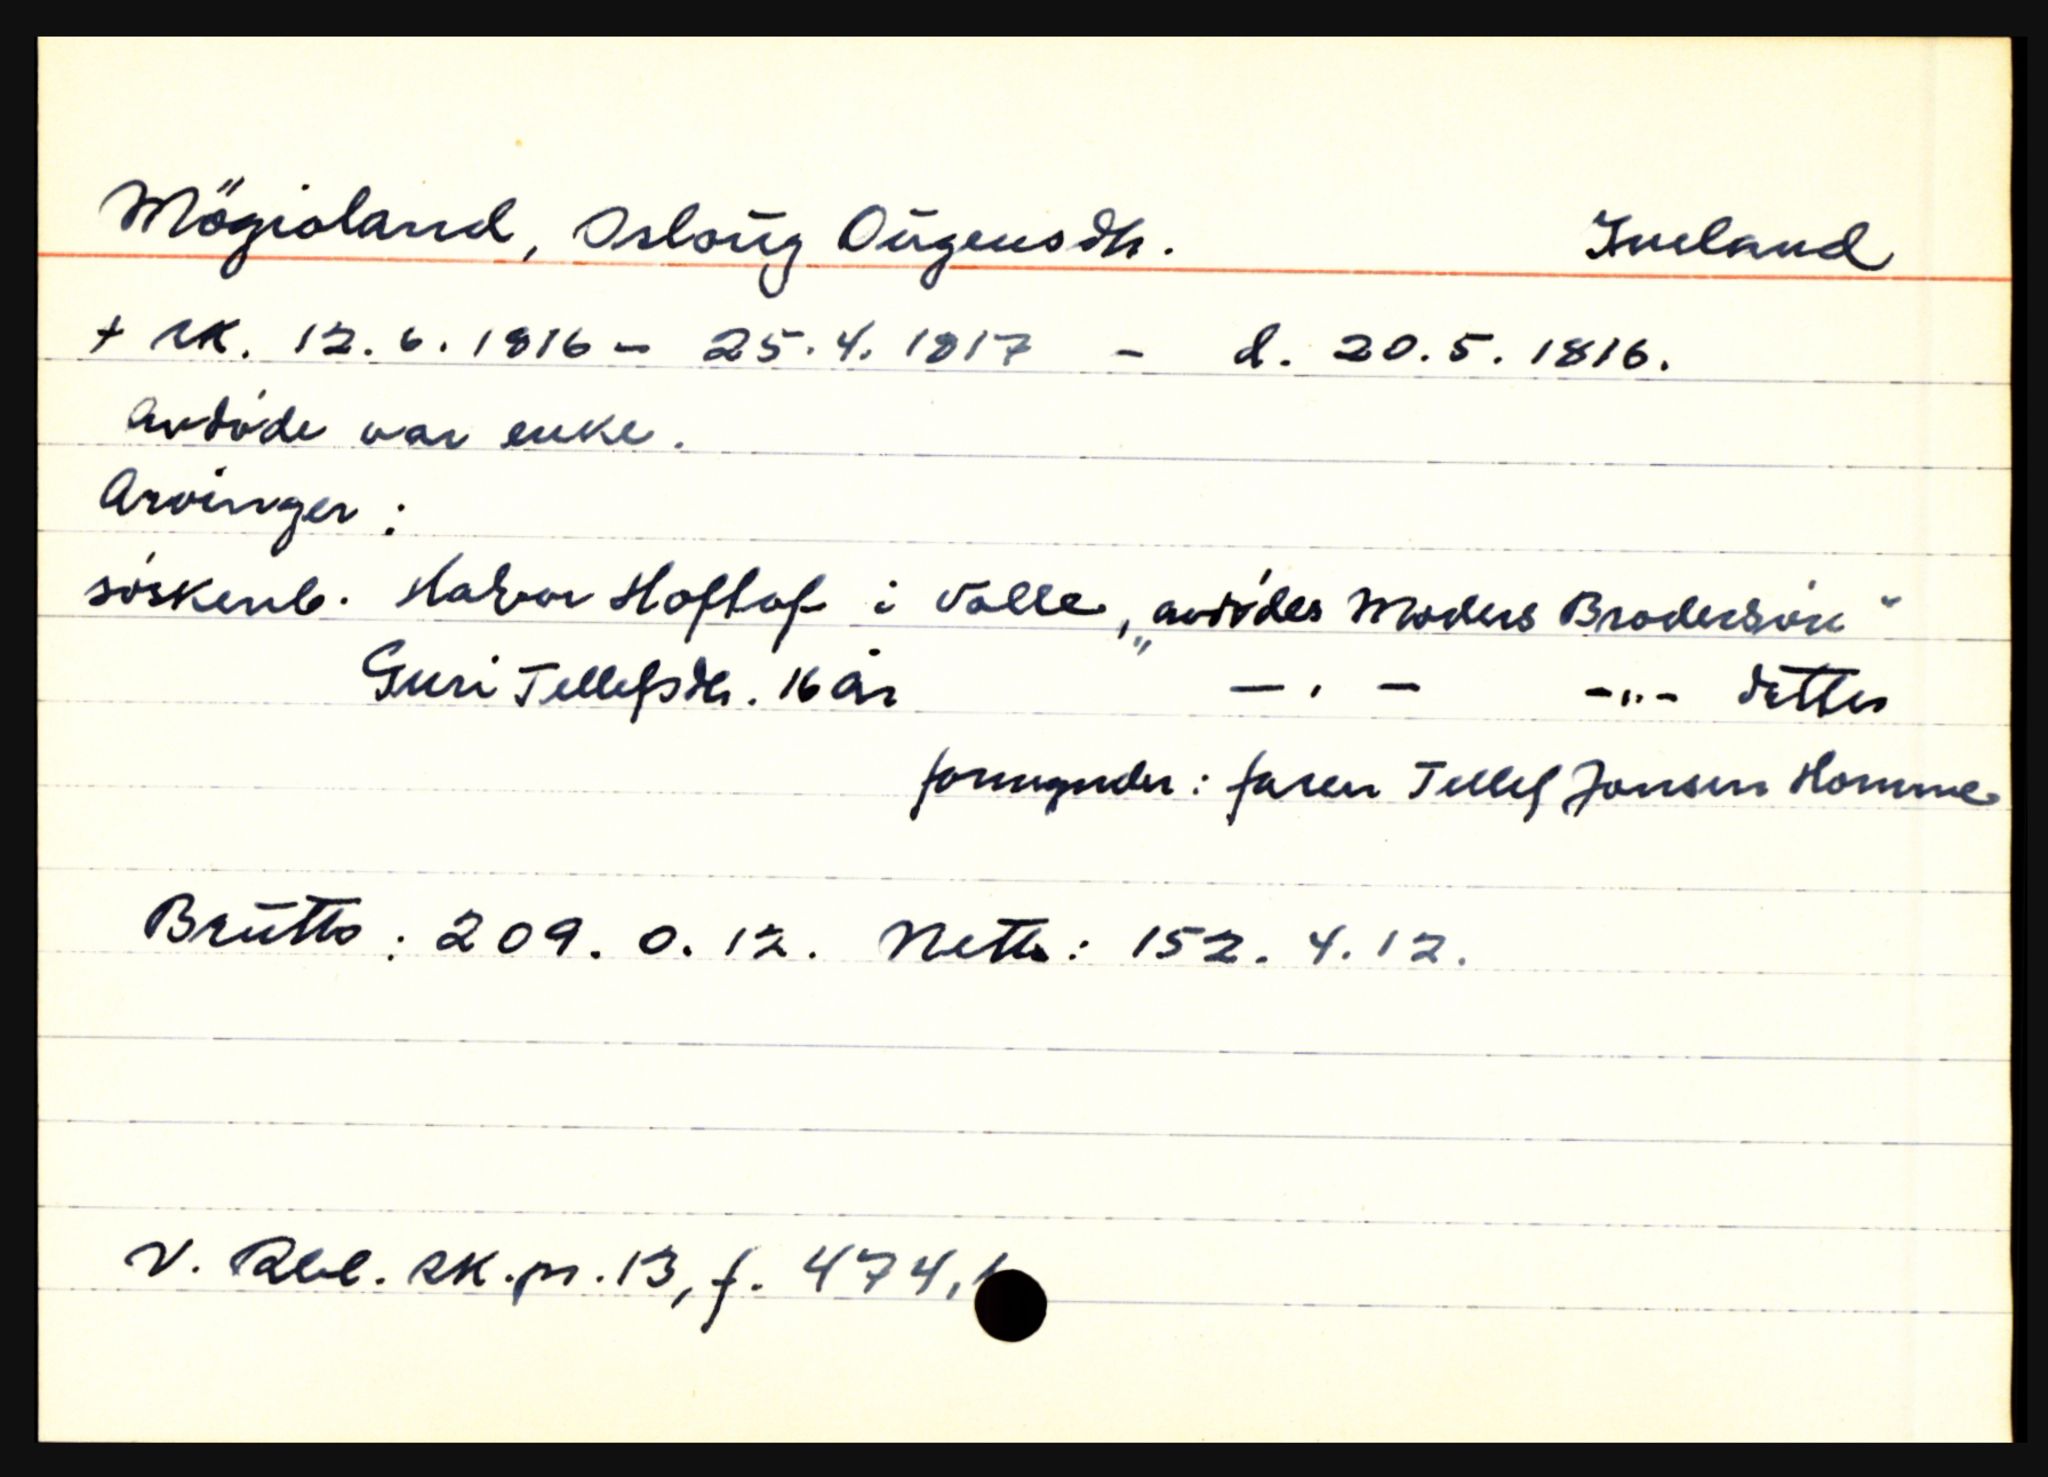 Mögioland, Osloŭg Oŭgensdtr. Iveland
+ sk. 12.6.1816 - 25.4.1817 - d. 20.5.1816.
avdöde var enke.
Arvinger:
söskenb. Halvor Hoftof i Valle, „avdödes Moders Brodersön“
Guri Tellefsdtr. 16 år — . — -..- datter
formynder: faren Tellef Jonsen Homme
Brŭtto: 209. 0. 12. Netto: 152. 4. 12.
V. Rbl. sk.pr. 13, f. 474,